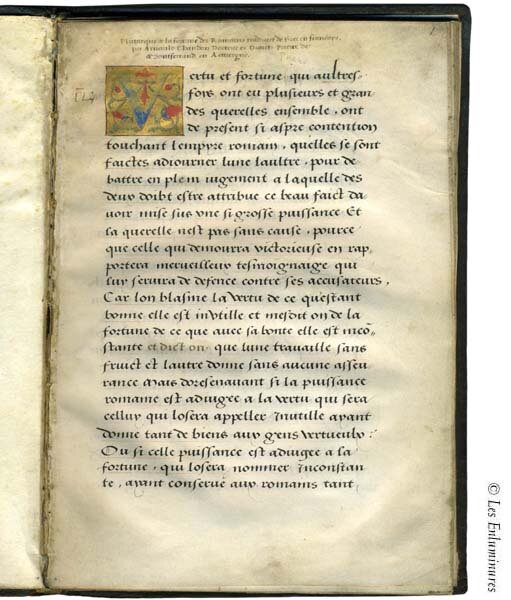 Plutarque de la fortune des Romains traduict de Grec en francois,
par Arnould Chandon Docteur es Droictz Prieur de
Montferrand en Auvergne.
1
Vertu et fortune qui aultres
fois ont eu plusieurs et gran
des querelles ensemble, ont
de present si aspre contention
touchant lempyre romain, quelles se sont
faictes adiourner lune laultre, pour de
battre en plein iugement a laquelle des
deux doibt estre attribue ce beau faict da
voir mise sus vne si grosse puissance Et
la querelle nest pas sans cause, pource
que celle qui demourra victorieuse en rap
portera merveilleux tesmoignaige qui
luy servira de defence contre ses accusateurs,
Car lon blasme la vertu de ce questant
bonne elle est inutille et mesdit on de la
fortune de ce que avec sa bonte elle est incō
stante et dict on que lune travaille sans
fruict et laultre donne sans aucune asseu
rance Mais doresenavant si la puissance
romaine est adiugee a la vertu qui sera
celluy qui losera appeller Inutille ayant
donne tant de biens aux gens vertueulx?
Ou si celle puissance est adiugee a la
fortune, qui losera nommer Inconstan
te, ayant conserve aux romains tant
© Les Enluminures